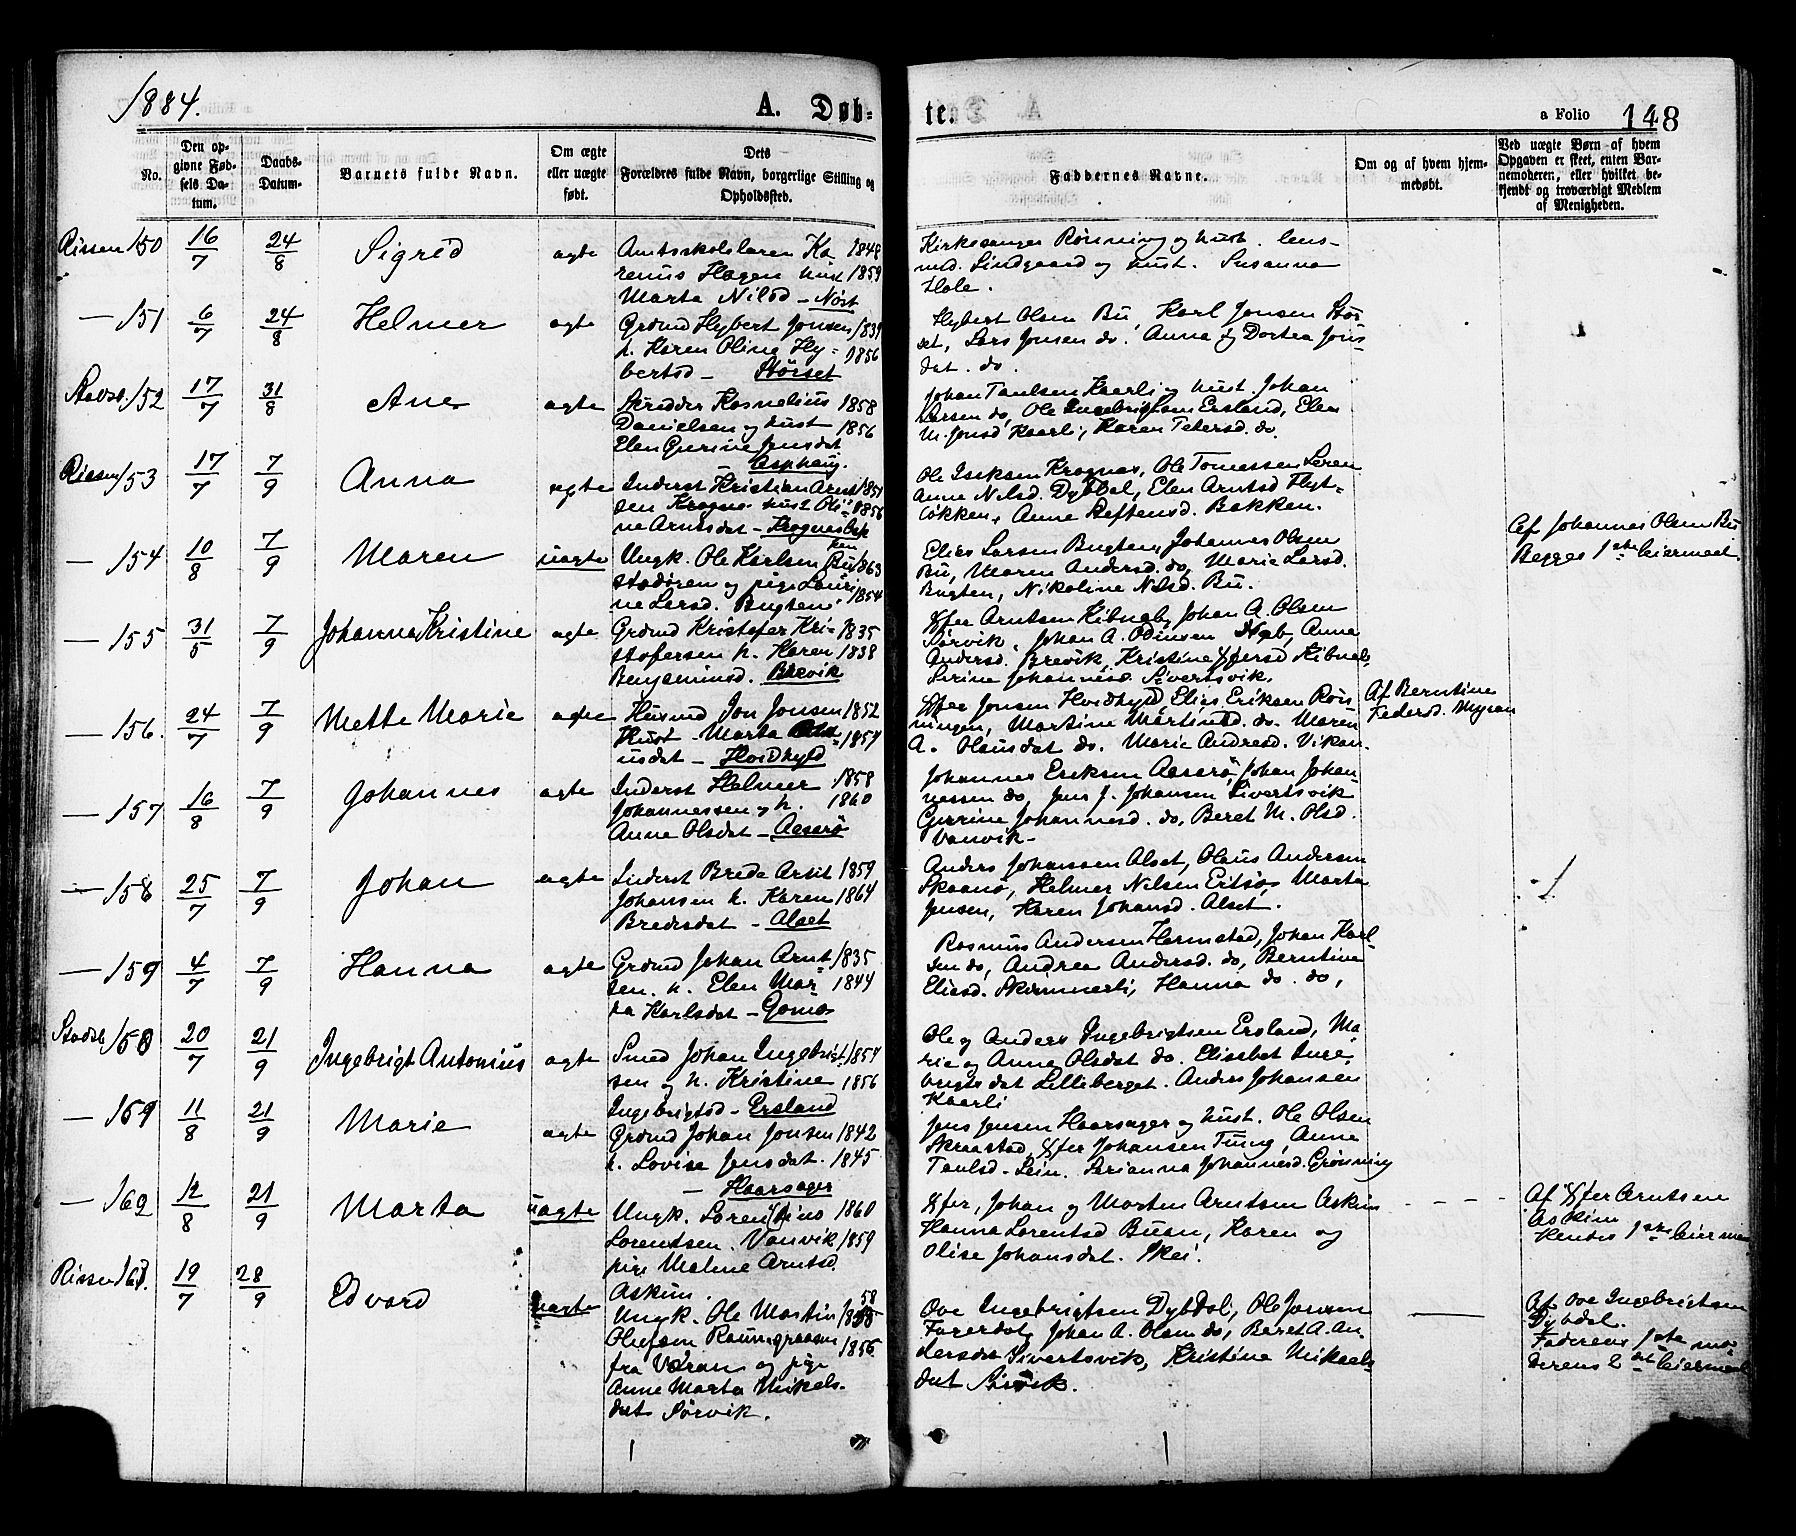 1884.
A. Døb-
te.
a Folio 148
No.
Den op-
givne Fød-
sels Da-
tum.
Daabs-
Datum.
Barnets fulde Navn.
Om ægte
eller uægte
født.
Dets
Forældres fulde Navn, borgerlige Stilling og
Opholdssted.
Faddernes Navne.
Om og af hvem hjem-
medøbt.
Ved uægte Børn af hvem
Opgaven er skeet, enten Bar-
nemoderen, eller hvilket be-
kjendt og troværdigt Medlem
af Menigheden.
Rissen 150 16/7 24/8 Sigrid ægte
Amtsskolelæren Ka 1848
renus Hagen hust 1859
Marta Nilsd - Nøst
Kirkesanger Rønning og hust. lens-
md. Lindgaard og hust. Susanna
Hole.
— 151 6/7 24/8 Helmer ægte
Grdmd Hybert Jonsen 1839
h. Karen Oline Hy- 1856
bertsd - Størset
Hybert Olsen Bu, Karl Jonsen Stør
set, Lars Jonsen do. Anna og Dortea Jons-
dat. do.
Stadsb. 152 17/7 31/8 Ane ægte
Skredder Kornelius 1858
Danielsen og hust 1856
Elen Gurine Jensdat
- Asphaug.
Johan Paulsen Kaarli og hust. Johan
Larsen do, Ole Ingebrigtsen Ersland, Elen
M. Jonsd Kaarli, Karen Petersd. do.
Rissen 153 17/7 7/9 Anna ægte
Inderst Kristian Arnt 1851
sen Krogns hust Oli- 1856
ne Arntsdat - Krognesbak
ken
Ole Iseksen Krognes, Ole Tomessen Leren
Anne Nilsd. Dybdal, Elen Arntsd Flyt-
løkken, Anne Steffensd. Bakken.
— 154 10/8 7/9 Maren uægte
Ungk. Ole Karlsen Bu 1863
stadøren og pige Lauri
ne Larsd. Bugten 1854
Elias Larsen Bugten, Johannes Olsen
Bu, Maren Andersd. do, Marie Larsd.
Bugten, Nikoline Nilsd. Bu.
Af Johannes Olsen Bu
Begges 1ste leiermaal
— 155 31/5 7/9 Johanna Kristine ægte
Grdmd Kristofer Kri- 1835
stofersen h. Karen 1838
Benjaminsd. Brevik
Ofer Arntsen Kibnab, Johan A. Olsen
Sørvik, Johan A. Odinsen Hab, Anne
Andersd. Brevik, Kristine Ofersd Kibnab
Serine Johannesd. Sivertsvik.
— 156. 24/7 7/9 Mette Marie ægte
Husmd Jon Jonsen 1852
Hust - Marta
usdat - Hvidhyld 1857
Ofer Jonsen Hvidhyld, Elias Eriksen Røn-
ningen, Martine Martinusd. do. Maren
A. Olausdat do. Marie Andreasd. Vikan.
Af Berntine
Pedersd. Myran
— 157 16/8 7/9 Johannes ægte
Inderst Helmer 1858
Johannessen og h. 1860
Anne Olsdat - Aaserø
Johannes Eriksen Aaserø, Johan Johan-
nessen do, Jens J. Johansen Sivertsvik
Gurine Johannesd. do, Beret M. Olsd.
Vanvik-
— 158 25/7 7/9 Johan ægte
Inderst Brede Arnt 1859
Johansen h. Karen 1864
Bredesdat - Alset
Anders Johansen Alset, Olaus Andersen
Skaanø, Helmer Nilsen Eitsø, Marta
Jensen, Karen Johansd. Alset.
— 159 4/7 7/9 Hanna ægte
Grdmd Johan Arnt- 1835
sen. h. Elen Mar- 1844
ta Karlsdat - Gomo
Rasmus Andersen Hermstad, Johan Karl-
sen do, Andrea Andersd. do, Berntine
Eliesd. Skrimmerli, Hanna do. do,
Stadsb 158 20/7 21/9 Ingebrigt Antonius ægte
Smed Johan Ingebrigt 1854
sen og h. Kristine 1856
Ingebrigtsd - Ersland
Ole og Anders Ingebrigtsen Ersland, Ma-
rie og Anne Olsdat do. Elisabet Inge
brigtsdat Lilleberget. Anders Johansen
Kaarli
— 159 11/8 21/9 Marie ægte
Grdmd Johan Jonsen 1842
h. Lovise Jensdat. 1845
- Haarsager
Jens Jensen Haarsager og hust. Ole Olsen
Skraastad, Ofer Johansen Tung, Anne
Paulsd. Lein. Serianna Johannesd. Grønning
— 160 12/8 21/9 Marta uægte
Ungk. Lorents Dino 1860
Lorentsen. Vanvik 1859
pige Maline Arntsd.
Askim.
Ofer, Johan og Morten Arntsen Askim
Hanna Lorentsd Buan, Karen og
Olise Johansdat. Skei.
Af Ofer Arntsen
Askim
Hendes 1ste leierm
Rissen 161. 19/7 28/9 Edvard uægte
Ungk. Ole Martin 1858
Olufsen Raumgraasen 1856
fra Væran og pige
Anne Marta Mikels-
dat Sørvik.
Ove Ingebrigtsen Dybdal, Ole Jonsen
Farerdal, Johan A. Olsen do, Beret A. An-
dersdat Sivertsvik, Kristine Mikaels-
dat Sørvik.
Af Ove Ingebrigtsen
Dybdal.
Faderens 1ste mo-
derens 2det leiermaal